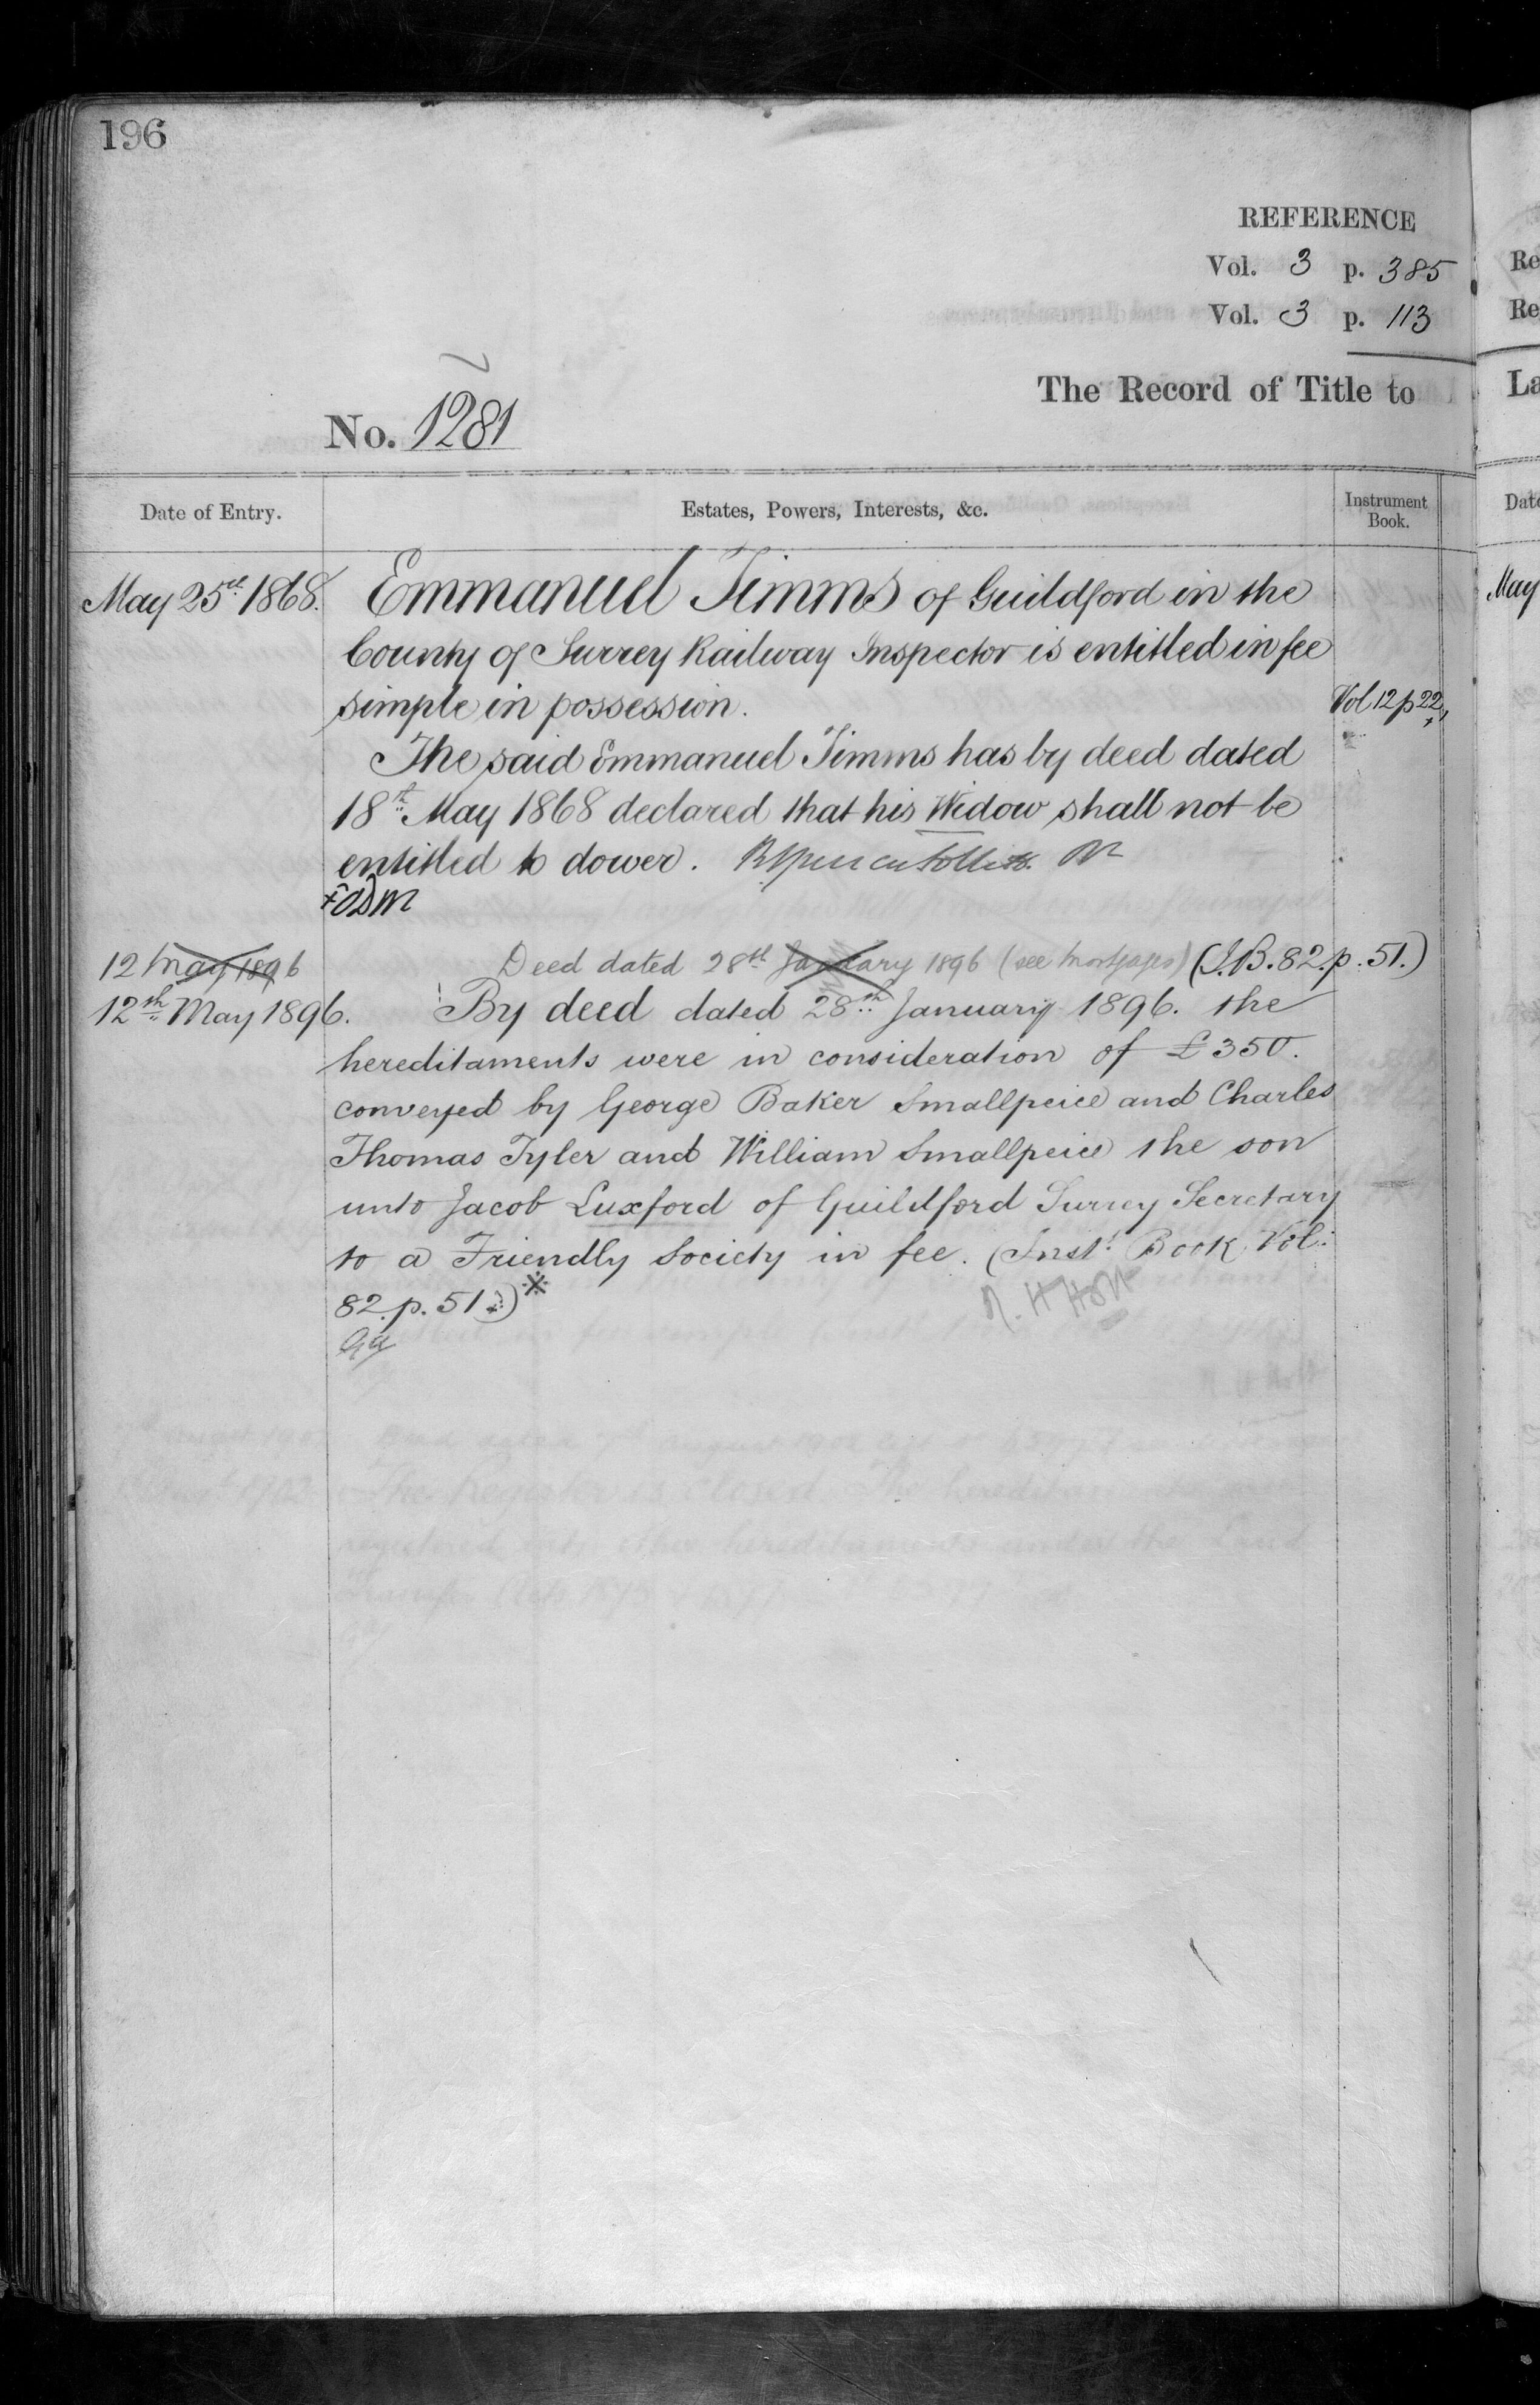 196
REFERENCE
Vol. 3 p. 385
Vol. 3 p. 113
The Record of Title to
No. 1281
Date of Entry.
Estates, Powers, Interests, &c.
Instrument Book.
May 25th 1868.
Emmanuel Timms of Guildford in the
County of Surrey Railway Inspector is entitled in fee
simple in possession.
Vol 12 p 22
The said Emmanuel Timms has by deed dated
18th May 1868 declared that his Widow shall not be
entitled to dower.
12 May 1896
Deed dated 28th January 1896 (see Mortgages) (I.B. 82. p. 51.)
12th May 1896.
By deed dated 28th January 1896. the
hereditaments were in consideration of £350.
conveyed by George Baker Smallpeice and Charles
Thomas Tyler and William Smallpeice the son
unto Jacob Luxford of Guildford Surrey Secretary
to a Friendly Society in fee. (Inst. Book Vol:
82. p. 51.)※
R. H Holt
Re
Re
La
Date
May